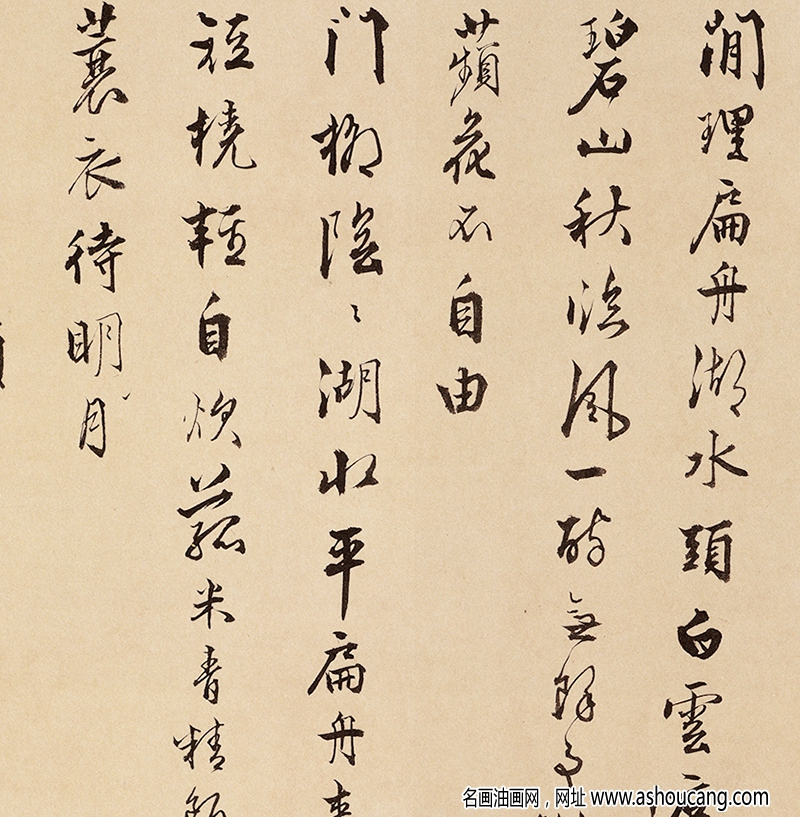 閒理扁舟湖水頭白雲
碧山秋風一醉無餘事
蘋花不自由
門柳陰〻湖水平扁舟
短橈輕自炊菰米青精飯
蓑衣待明月
名画油画网，网址 www.ashoucang.com